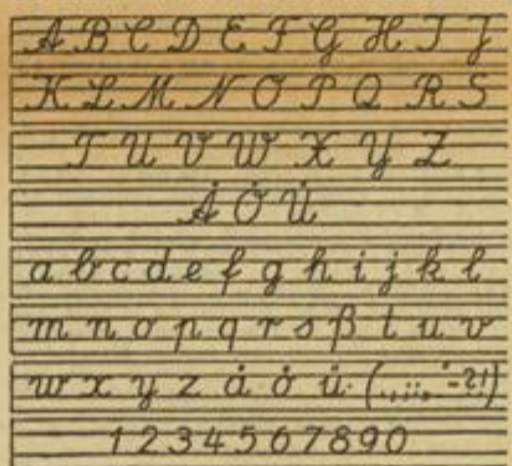 A B C D E F G H I J
K L M N O P Q R S
T U V W X Y Z
Ä Ö Ü
a b c d e f g h i j k l
m n o p q r s ß t u v
w x y z ä ö ü (.,;:„“-?!)
1 2 3 4 5 6 7 8 9 0